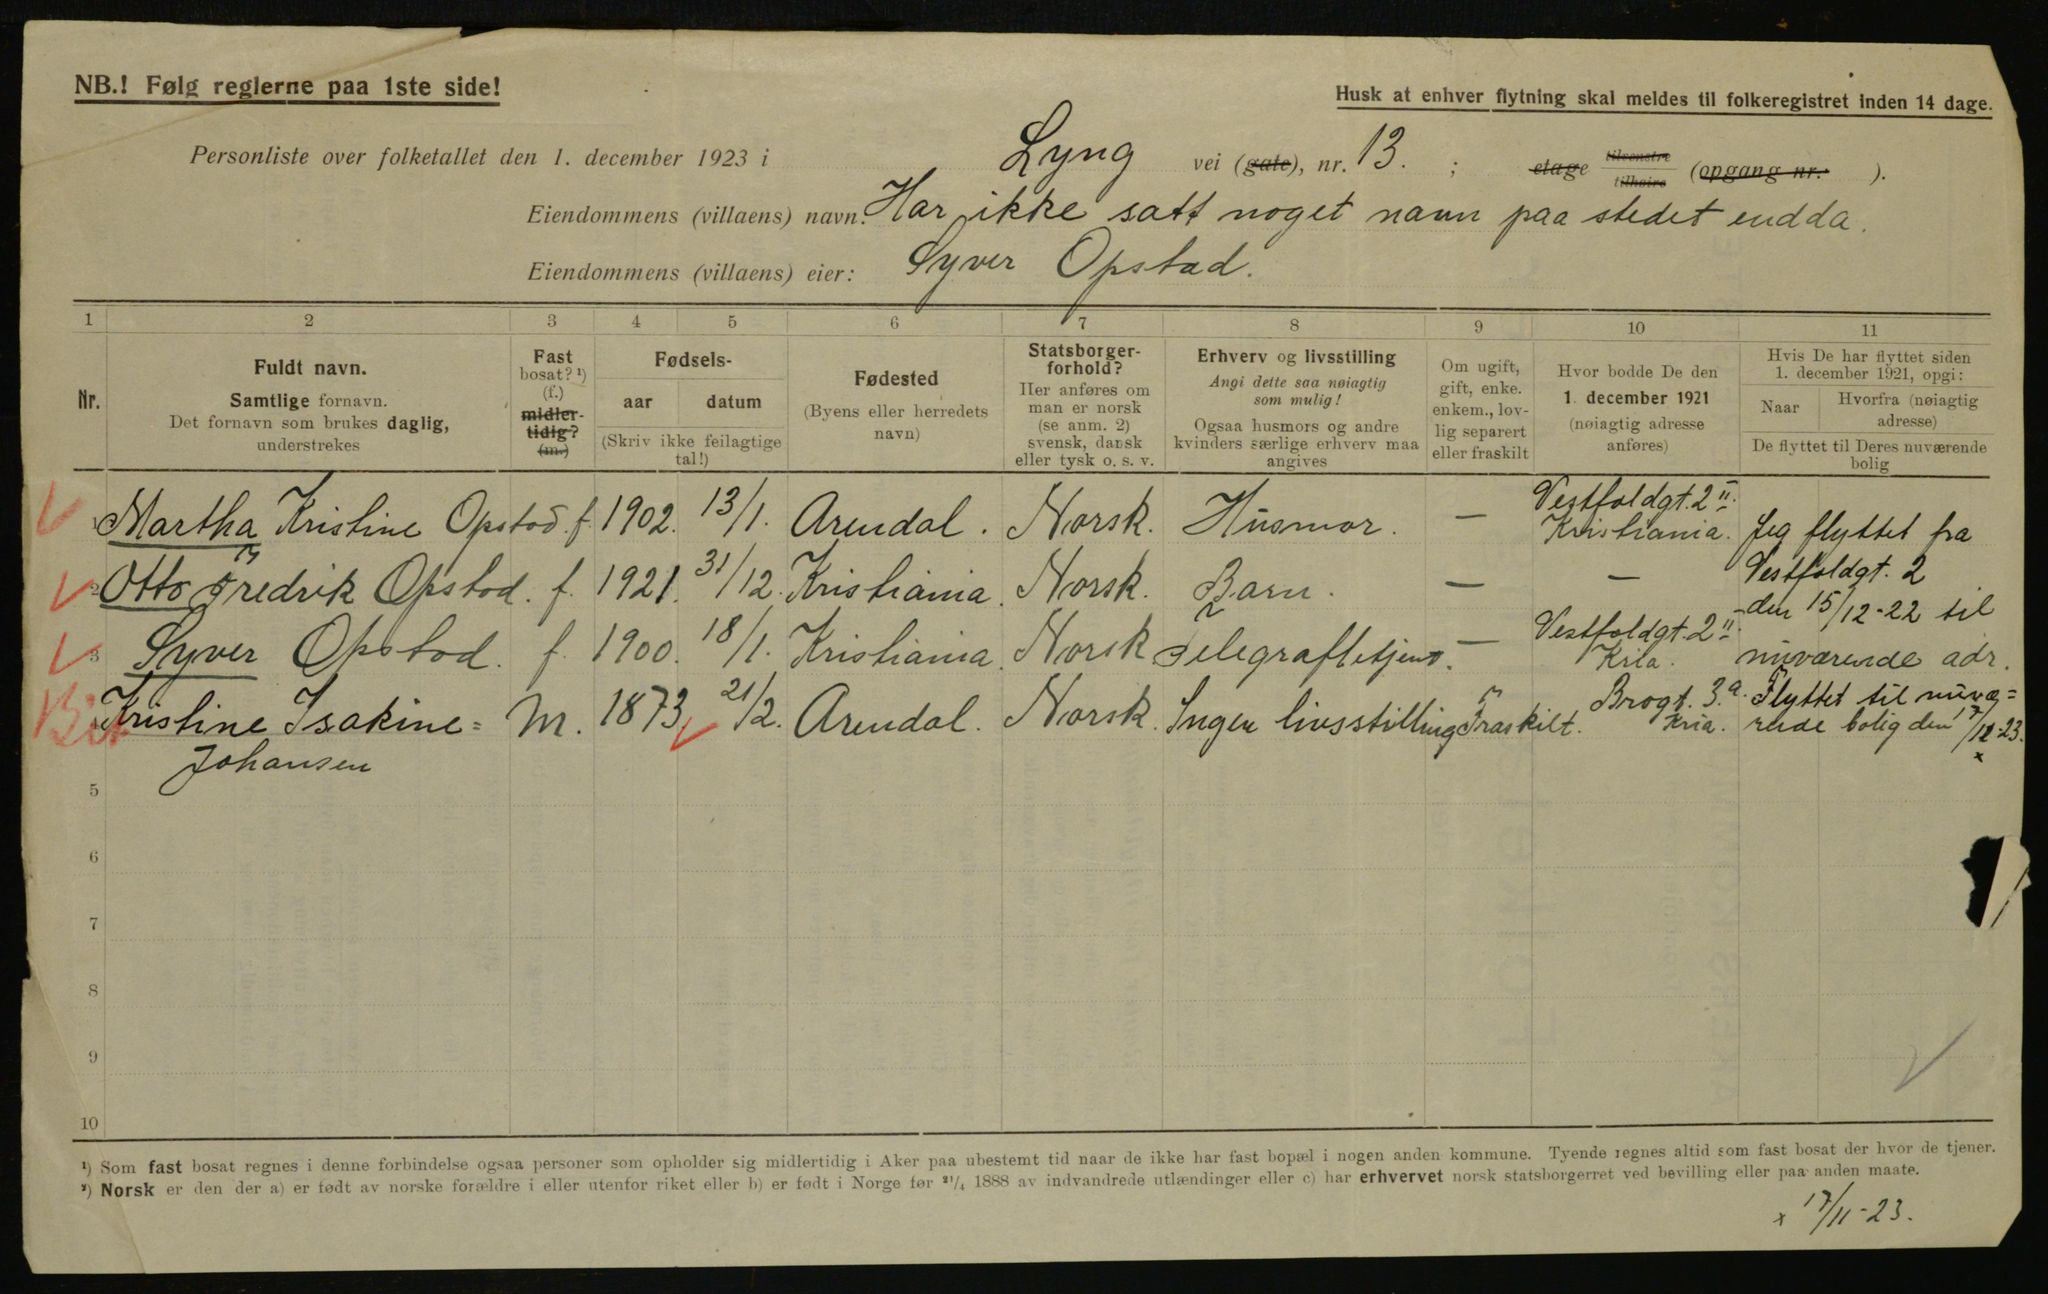 NB.! Følg reglerne paa 1ste side!
Husk at enhver flytning skal meldes til folkeregistret inden 14 dage.
Personliste over folketallet den 1. december 1923 i Lyng vei (gate), nr. 13. ; etage tilvenstre tilhøire (opgang nr. ).
Eiendommens (villaens) navn: Har ikke satt noget navn paa stedet endda.
Eiendommens (villaens) eier: Syver Opstad.
1 2 3 4 5 6 7 8 9 10 11
Nr.
Fuldt navn.
Samtlige fornavn.
Det fornavn som brukes daglig,
understrekes
Fast
bosat? ¹)
(f.)
midler-
tidig?
(m.)
Fødsels-
aar datum
(Skriv ikke feilagtige
tal!)
Fødested
(Byens eller herredets
navn)
Statsborger-
forhold?
Her anføres om
man er norsk
(se anm. 2)
svensk, dansk
eller tysk o. s. v.
Erhverv og livsstilling
Angi dette saa nøiagtig
som mulig!
Ogsaa husmors og andre
kvinders særlige erhverv maa
angives
Om ugift,
gift, enke.
enkem., lov-
lig separert
eller fraskilt
Hvor bodde De den
1. december 1921
(nøiagtig adresse
anføres)
Hvis De har flyttet siden
1. december 1921, opgi:
Naar
Hvorfra (nøiagtig
adresse)
De flyttet til Deres nuværende
bolig
1 Martha Kristine Opstad. f. 1902. 13/1. Arendal. Norsk. Husmor. — Vestfoldgt. 2 II. Kristiania. Jeg flyttet fra
2 Otto Fredrik Opstad. f. 1921. 31/12. Kristiania. Norsk. Barn. — — Vestfoldgt. 2
den 15/12-22 til
3 Syver Opstad. f. 1900. 18/1. Kristiania. Norsk Telegrafletjent. — Vestfoldgt. 2 II. Kria. nuværende adr.
Kristine Isakine= M. 1873 21/2. Arendal. Norsk. Ingen livsstilling Fraskilt. Brogt. 3.a. Kria. Flyttet til nuvæ=
Johansen
rende bolig den 17/12-23.
x
5
6
7
8
9
10
¹) Som fast bosat regnes i denne forbindelse ogsaa personer som opholder sig midlertidig i Aker paa ubestemt tid naar de ikke har fast bopæl i nogen anden kommune. Tyende regnes altid som fast bosat der hvor de tjener.
²) Norsk er den der a) er født av norske forældre i eller utenfor riket eller b) er født i Norge før ²¹/₄ 1888 av indvandrede utlændinger eller c) har erhvervet norsk statsborgerret ved bevilling eller paa anden maate.
x 17/11-23.